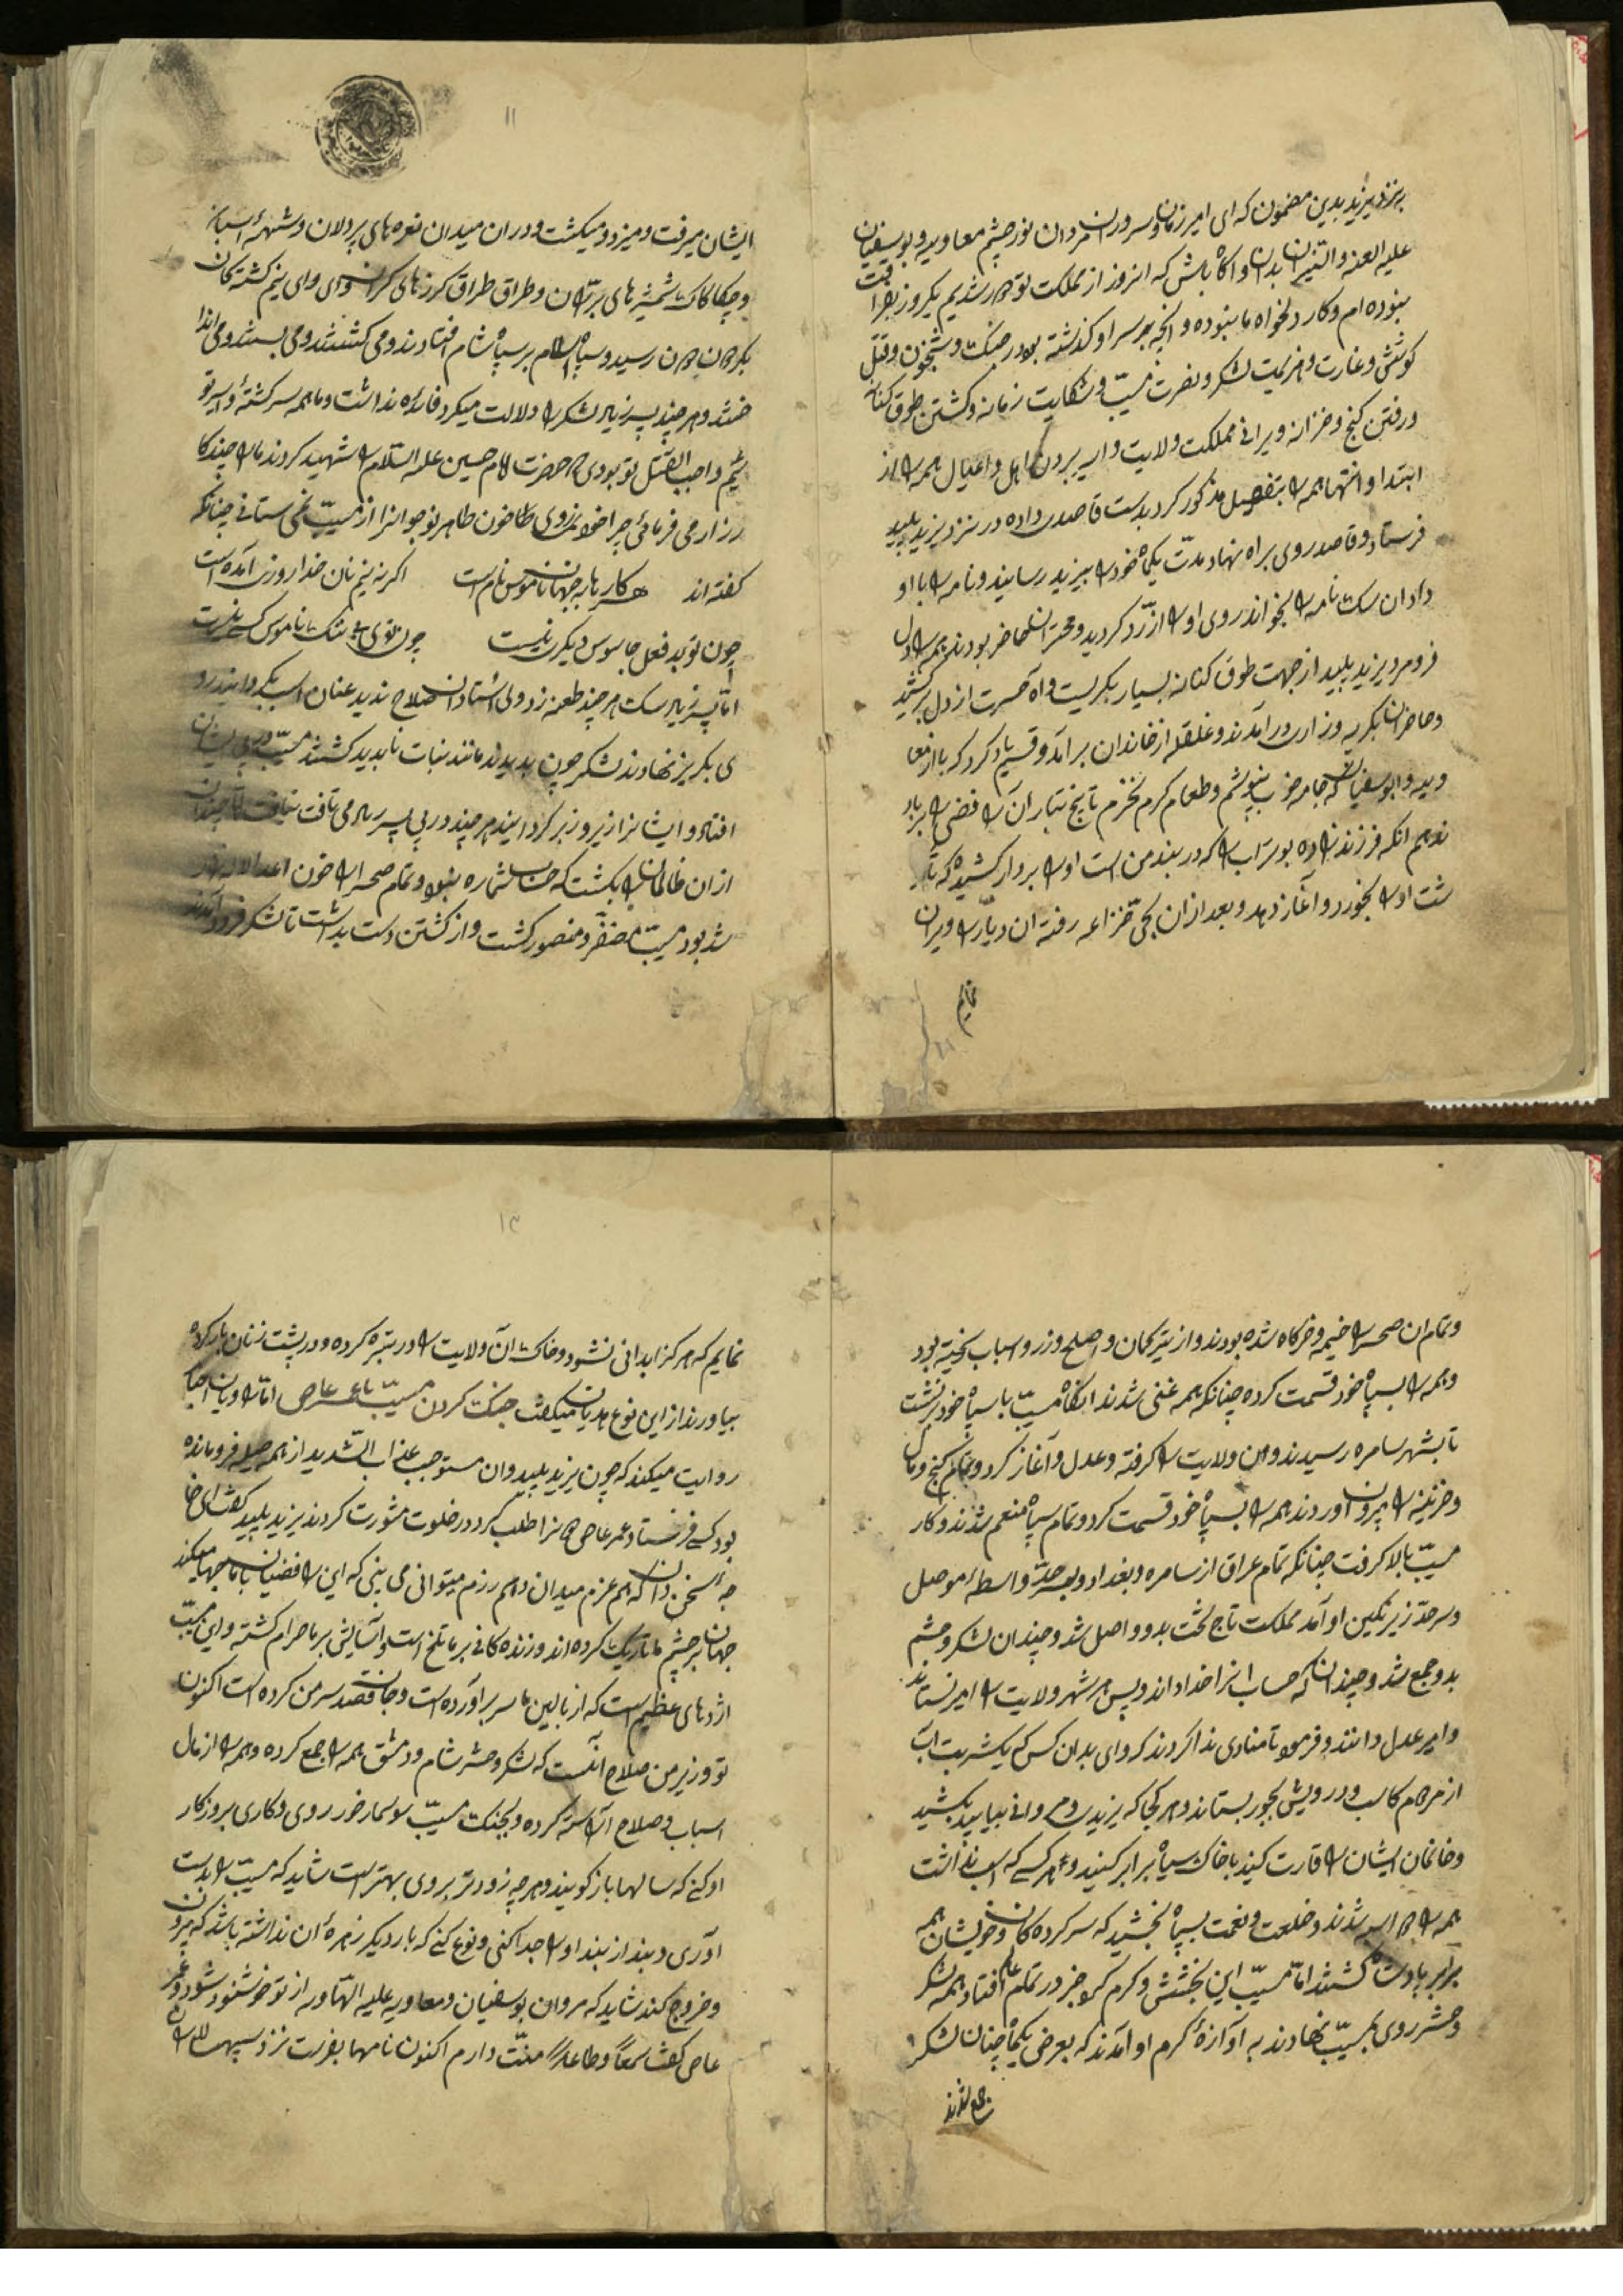 به نزد یزید بدین مضمون که ای امیر زمان و سرور مردان نور چشم معاویه و بوسفیان
علیه العنه بدان و اگاه باش که انروز از مملکت تو بدر شدیم یکروز بفراغت
نبوده ام و کار دلخواه ما نبوده و انچه بر سر او گذشته بود در جنگ و شبخون و قتل
کوشش و غارت و هزیمت لشکر و نصرت مسیب و شکایت زمانه و کشتن طوق کنانه
و رفتن کنج و خزانه و ویرانی مملکت ولایت و اسیر بردن اهل و اعیال همه را از
ابتدا و انتها همه را بتفصیل مذکور کرد بدست قاصدی داده در نزد یزید پلید
فرستاد و قاصد روی براه نهاد مدت یکماه خود را بیزید رسانید و نامه را با او
داد ان سک نامه را بخواند روی او از زرد کردید و حاضر بودند همه را دل
فرو مرد یزید پلید از جهت طوق کنانه بسیار بکریست و اه حسرت از دل برکشید
و حاضران بکریه و زاری در آمدند و غلغله از خاندان برآمد و قسم یاد کرد که بارواح معا
ویه و ابوسفیان که جامه خوب نپوشم و طعام کرم نخورم تا بیخ و تبار ان رافضی را بر باد
ندهم انکه فرزند زاده بوتراب را که در بند من است او را بردار کشیده که
شت او را بخورد و آغاز دهد و بعد از ان بحی خزاعه رفته ان دیار را ویران
نمایم
۱۱
ایشان میرفت و میزد و میکشت و دران میدان نعره های پردلان و شیهه اسبان
و چکاچاک شمشیرهای بران و طراق طراق کرزهای کران و وای وای نیم کشته کان
بکردون رسید و سپاه اسلام بر سپاه شام افتادند و می کشتند و می بستند و می انداـ
ختند و هر چند پسر زیاد لشکر را دلالت میکرد فائده نداشت و ما همه سرکشته و اسیر تو
ئیم واجب القتل تو بودی که حضرت امام حسین علیه السلام را شهید کردند ما را چند کا
رزار می فرمائی چرا خود نمیروی تا خون طاهر نوجوانرا از مسیب نمی ستانی چنانکه
کفته اند     هر کارها به جهان ناموس نام است     اکر نه نیم نان خدا روزی آمده است
چون تو بد فعل جاسوس دیکری نیست     چون توی بی ننک ناموس کسی نیست
اما پسر زیاد سک هر چند طعنه زد ولی استادن صلاح ندید عنان اسب بکردانید رو
ی بکریز نهادند لشکر چون بدیدند مانند بنات ناپدید کشتند مسیب در پی ایشان
افتاد و ایشانرا زیر و زبر کردانید هر چند در پی پسر زیاد می تافت نیافت اما چندان
از ان ظالمان را بکشت که حساب شماره نبود و تمام صحرا از خون اعدا لاله زار
شد بود مسیب مظفر و منصور کشت و از کشتن دست بداشت تا لشکر فرود آمدند
و تمام ان صحرا خیمه و خرکاه شده بودند و از تیر کمان و اصلح و زر و اسباب ریخته بود
و همه را بسپاه خود قسمت کرده چنانکه همه غنی شدند انکاه مسیب با سپاه خود برنشت
تا بشهر سامره رسیدند و ان ولایت را کرفته و عدل و آغاز کرد و تمام کنج و مال
و خزینه را بیرون آوردند همه را بسپاه خود قسمت کرد و تمام سپاه منعم شدند و کار
مسیب بالا کرفت چنانکه تمام عراق از سامره و بغداد و بصره و واسطه موصل
و سرحد زیر نکین او آمد مملکت تاج تخت بدو واصل شد و چندان لشکر و حشم
بدو جمع شد و چندان که حساب انرا خدا داند و پس هر شهر ولایت را امیر نشاند
و امیر عدل دانند و فرمود تا منادی ندا کردند که وای بدان کس که یک شربت آب
از مردم کاسب و درویش بجور بستاند و هر کجا که یزیدی و مروانی بیابید بکشید
و خانمان ایشان را قارت کنید با خاک سیاه برابر کنید و هر کسی که اسب نداشت
همه را اسب شدند و خلعت و نعمت بسپاه بخشید که سر کرده کان و خویشان همه
برابر پادشاه کشتند اما مسیب این بخشش و کرم کرد خبر در تمام عالم افتاد همه لشکر
و حشر روی بمسیب نهادند به آوازه کرم او آمدند که بعرض یکماه چنان لشکر
جمع شدند
۱۳
نمایم که هرکز ابدانی نشود و خاک آن ولایت را در توبره کرده و در پشت زنان بار کرده
بیاورند از این نوع هدیان میکفت جنک کردن مسیب با عمر عاص اما راویان اخبار
روایت میکند که چون یزید پلید و ان مستوجب عذاب الشدید از همه حیله فرو مانده
بود کس فرستاد عمر عاص را طلب کرد در خلوت مشورت کردند یزید پلید کفت ای خا
جه سخن دان که هم عزم میدان و هم رزم میتوانی می بینی که این رافضیان با ما چها میکند
جهان بر چشم ما تاریک کرده اند و زنده کانی بر ما تلخ است و آسایش بر ما حرام کشته و این مسیب
اژدهای عظیم است که از بالین ما سر برآورده است و جان قصد سر من کرده است اکنون
تو وزیر من صلاح آنست که لشکر و حشر شام و دمشق همه را جمع کرده و همه را از مال
اسباب و صلاح آراسته کرده و بجنک مسیب سوسمار خور روی و کاری بروزکار
او کنی که سالها باز کویند و هر چه زودتر بروی بهتر است شاید که مسیب را بدست
آوری و بند از بند او را جدا کنی و نوع کنی که بار دیکر زهره ان نداشته باشد که بیرون
و خروج کند شاید که مروان بوسفیان و معاویه علیه الهاویه از تو خوشنود شود و عمر
عاص کفت سمعا و طاعتا منت دارم اکنون نامها بفرست نزد سپهسالاران